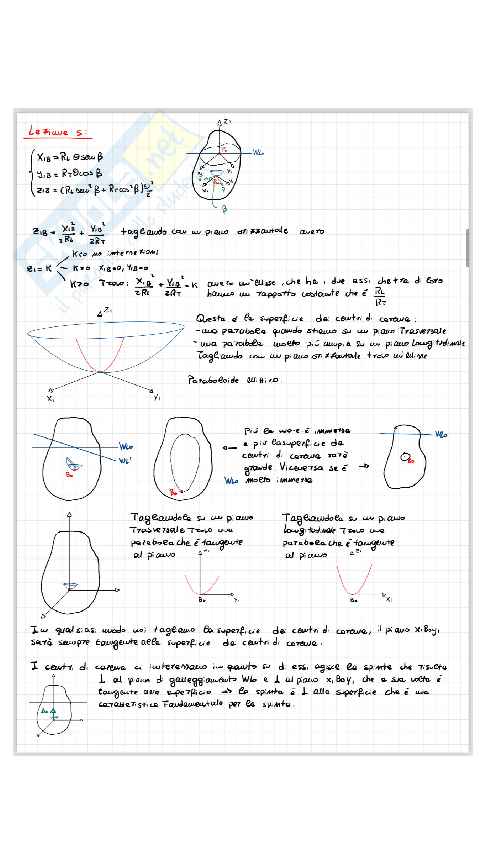 Lezione 5:
Z1
X1B = RL θ sen β
Y1B = RT θ cos β
Z1B = (RL sen²β + RT cos²β) θ²/2
WL0
β
Z1B = X1B²/2RL + Y1B²/2RT tagliando con un piano orizzontale avrò
Z1 = K
K<0 no intersezioni
K=0 X1B=0, Y1B=0
K>0 Trovo: X1B²/2RL + Y1B²/2RT = K avrò un'ellisse, che ha i due assi che tra di loro
hanno un rapporto costante che è RL/RT
Z1
X1
Y1
Questa è la superficie dei centri di carena:
- una parabola quando stiamo su un piano Trasversale
- una parabola molto più ampia su un piano longitudinale
Tagliando con un piano orizzontale trovo un'ellisse
Paraboloide ellittico
WL0
WL1
B0
B0
Più la nave è immersa
e più la superficie dei
centri di carena sarà
grande. Viceversa se è
molto immersa
WL0
WL0
B0
Tagliandola su un piano
Trasversale Trovo una
parabola che è tangente
al piano
Z1
B0
Y1
Tagliandola su un piano
longitudinale Trovo una
parabola che è tangente
al piano
Z1
B0
X1
In qualsiasi modo noi tagliamo la superficie dei centri di carena, il piano X1B0Y1
sarà sempre tangente alla superficie dei centri di carena.
I centri di carena ci interessano in quanto su di essi agisce la spinta che risulta
⊥ al piano di galleggiamento WL0 e ⊥ al piano X1B0Y1 che a sua volta è
tangente alla superficie → la spinta è ⊥ alla superficie che è una
caratteristica Fondamentale per la spinta.